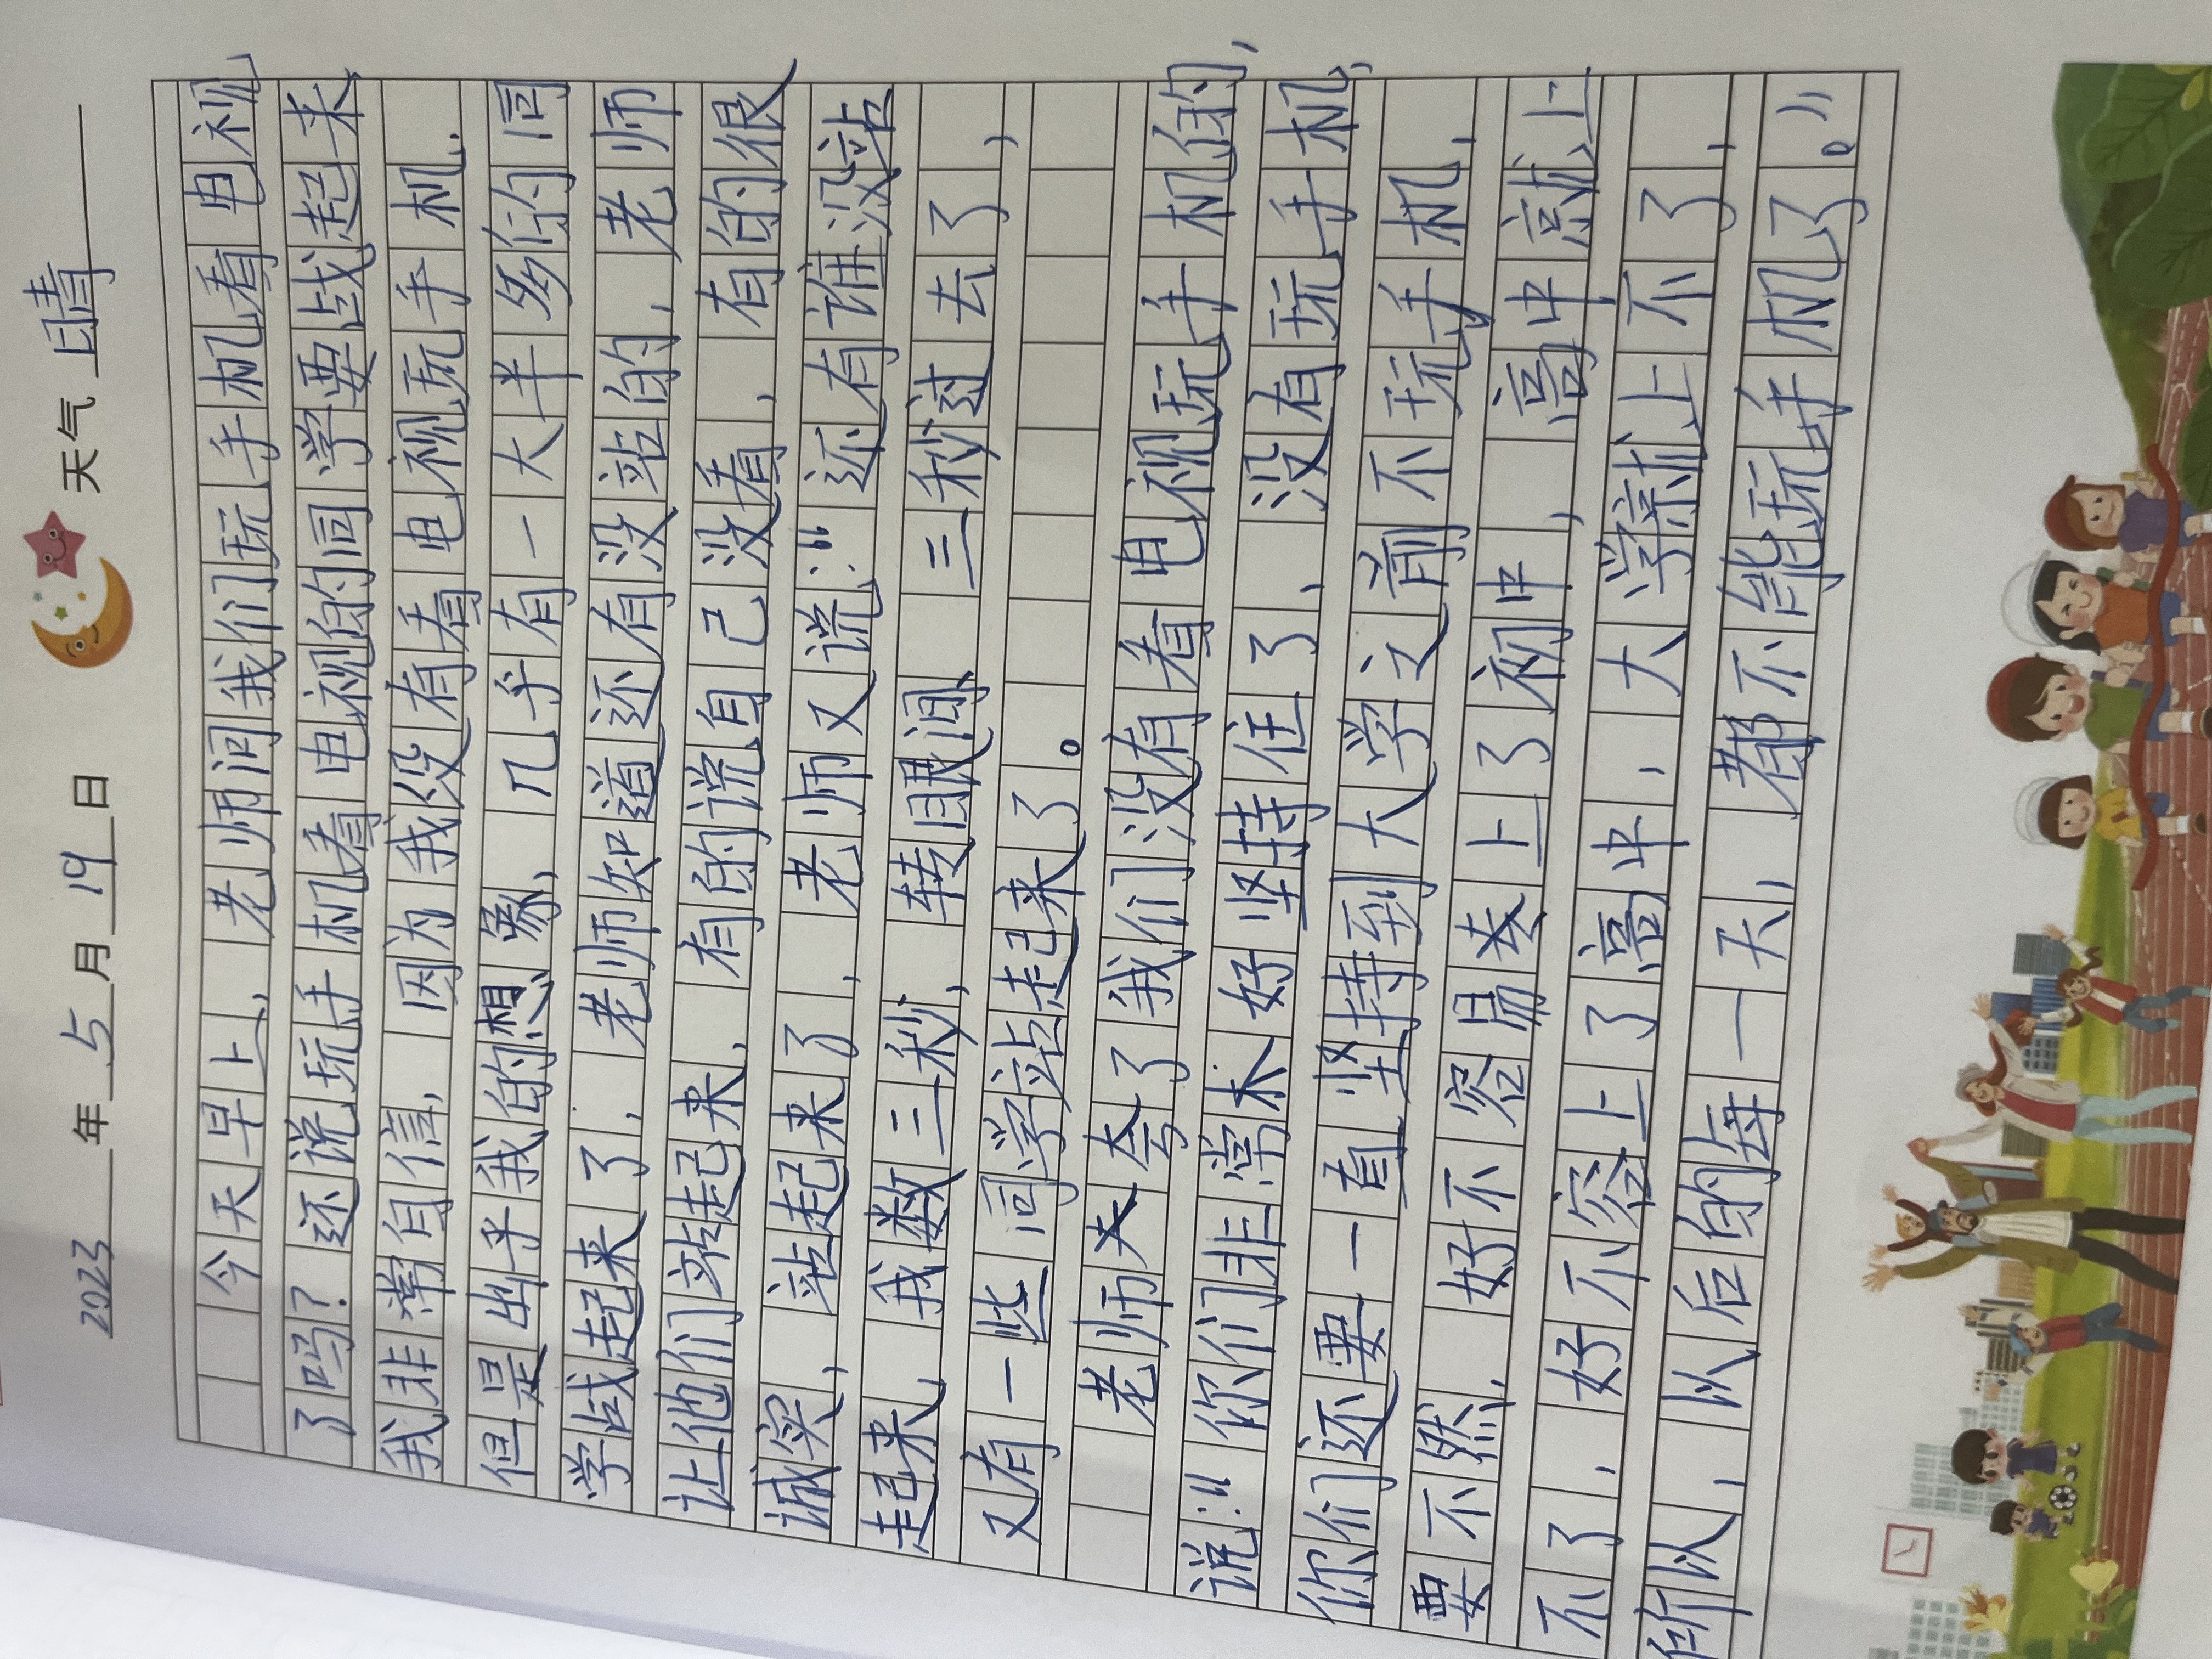 2023年5月19日 天气 晴
今天早上，老师问我们玩手机看电视
了吗？还说玩手机看电视的同学要战起来，
我非常自信，因为我没有看电视玩手机.
但是出乎我的想象，几乎有一大半多的同
学战起来了，老师知道还有没站的，老师
让他们站起来，有的说自己没看，有的很
诚实，站起来了，老师又说：“还有谁没站
起来，我数三秒，转眼间，三秒过去了，
又有一些同学站起来了。
老师夫夸了我们没有看电视玩手机的，
说：“你们非常木好坚持住了，没有玩手机，
你们还要一直坚持到大学之前不玩手机，
要不然，好不容易去上了初中，高中就上
不了，好不容上了高中，大学就上不了，
所以，从后的每一天，都不能玩手机了。”